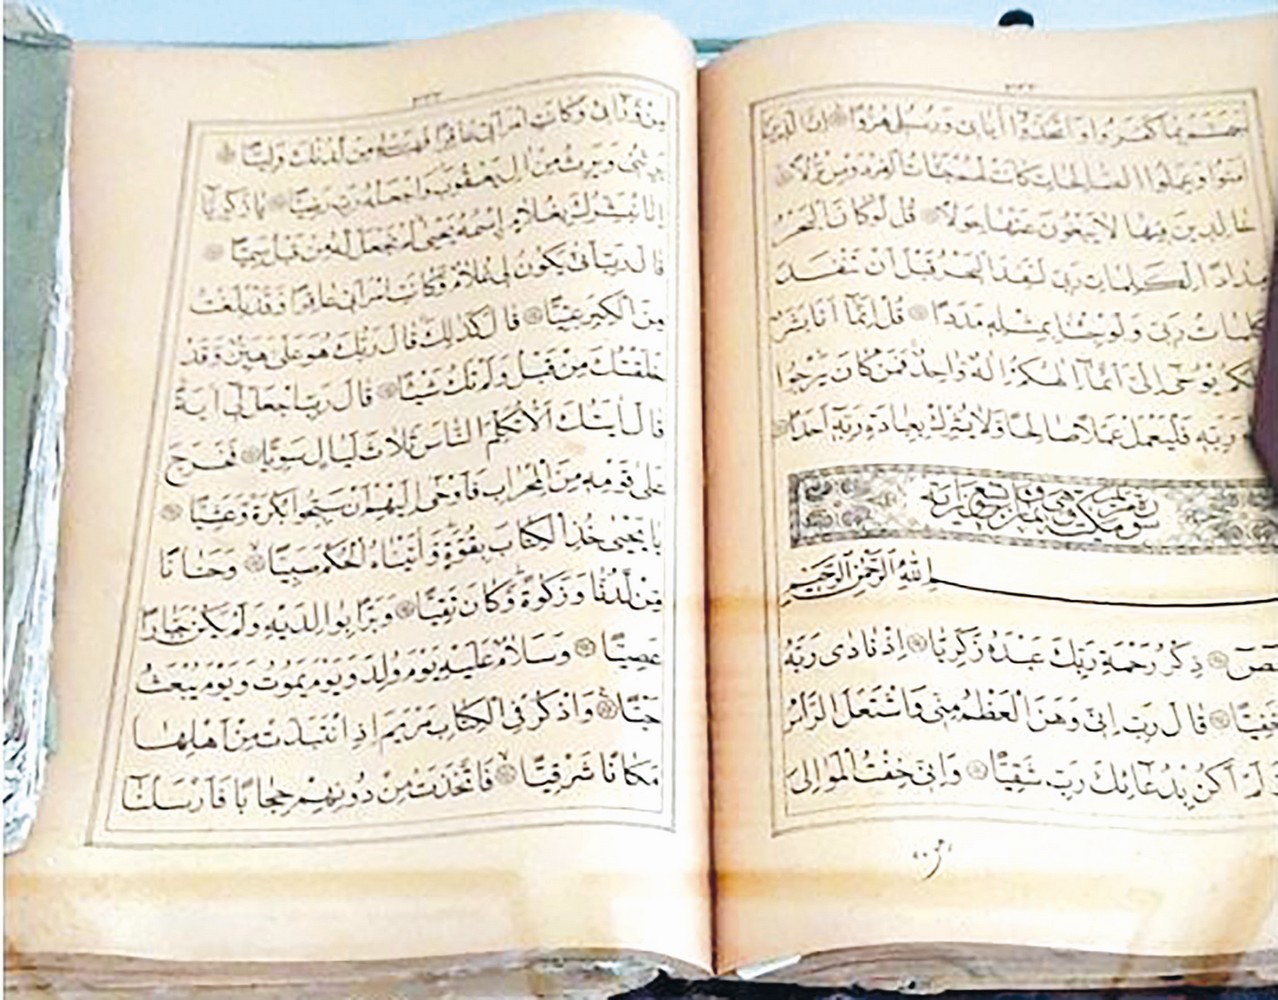 جهنم بما كفروا واتخذوا اياتى ورسلى هزوا ان الذين
امنوا وعملوا الصالحات كانت لهم جنات الفردوس نزلا
خالدين فيها لا يبغون عنها حولا قل لو كان البحر
مدادا لكلمات ربى لنفد البحر قبل ان تنفد
كلمات ربى ولو جئنا بمثله مددا قل انما انا بشر
يوحى الى انما الهكم اله واحد فمن كان يرجوا
ربه فليعمل عملا صالحا ولا يشرك بعبادة ربه احدا
سورة مريم مكية وهى ثمان وتسعون اية
الله الرحمن الرحيم
ذكر رحمة ربك عبده زكريا اذ نادى ربه
خفيا قال رب انى وهن العظم منى واشتعل الراس
ولم اكن بدعائك رب شقيا وانى خفت الموالى
من ورائى وكانت امراتى عاقرا فهب لى من لدنك وليا
يرثنى ويرث من ال يعقوب واجعله رب رضيا يا زكريا
انا نبشرك بغلام اسمه يحيى لم نجعل له من قبل سميا
قال رب انى يكون لى غلام وكانت امراتى عاقرا وقد بلغت
من الكبر عتيا قال كذلك قال ربك هو على هين وقد
خلقتك من قبل ولم تك شيئا قال رب اجعل لى اية
قال ايتك الا تكلم الناس ثلاث ليال سويا فخرج
على قومه من المحراب فاوحى اليهم ان سبحوا بكرة وعشيا
يا يحيى خذ الكتاب بقوة واتيناه الحكم صبيا وحنانا
من لدنا وزكوة وكان تقيا وبرا بوالديه ولم يكن جبارا
عصيا وسلام عليه يوم ولد ويوم يموت ويوم يبعث
حيا واذكر فى الكتاب مريم اذ انتبذت من اهلها
مكانا شرقيا فاتخذت من دونهم حجابا فارسلنا